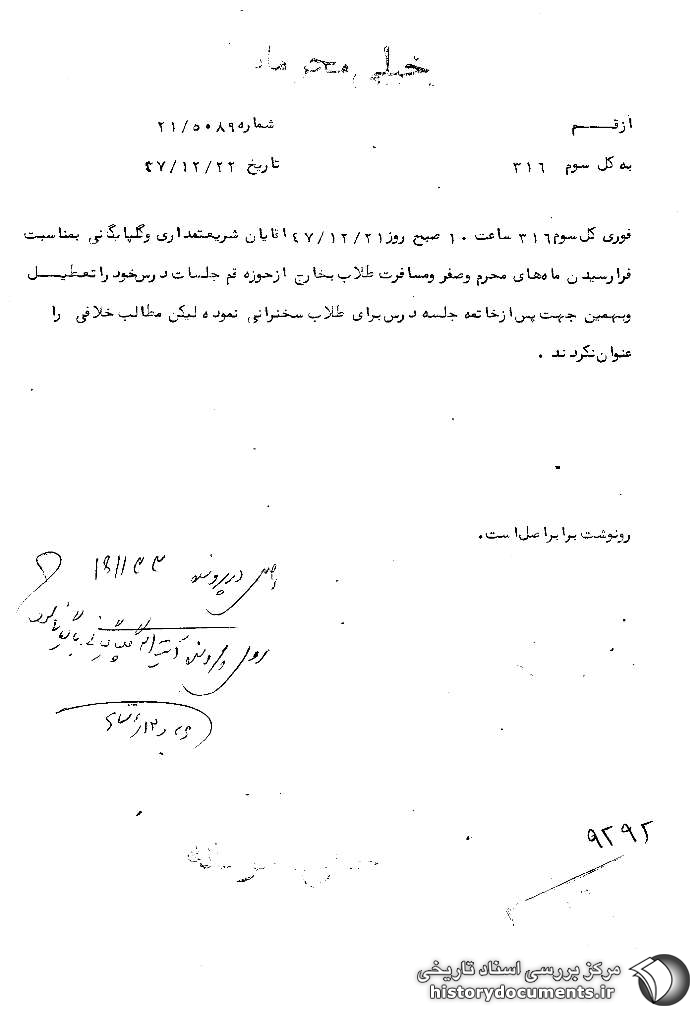 خیلی محرمانه
از قـــم شماره ۲۱/۵۰۸۹
به کل سوم ۳۱۶ تاریخ ۴۷/۱۲/۲۲
فوری کل سوم ۳۱۶ ساعت ۱۰ صبح روز ۴۷/۱۲/۲۱ اقایان شریعتمداری وگلپایگانی بمناسبت
فرا رسیدن ماه‌های محرم وصفر ومسافرت طلاب بخارج از حوزه قم جلسات درس خود را تعطیـــل
وبهمین جهت پس از خاتمه جلسه درس برای طلاب سخنرانی نموده لیکن مطالب خلافی را
عنوان نکردند .
رونوشت برابر اصل است.
اصل در پرونده
۹۲۹۲
مرکز بررسی اسناد تاریخی
historydocuments.ir